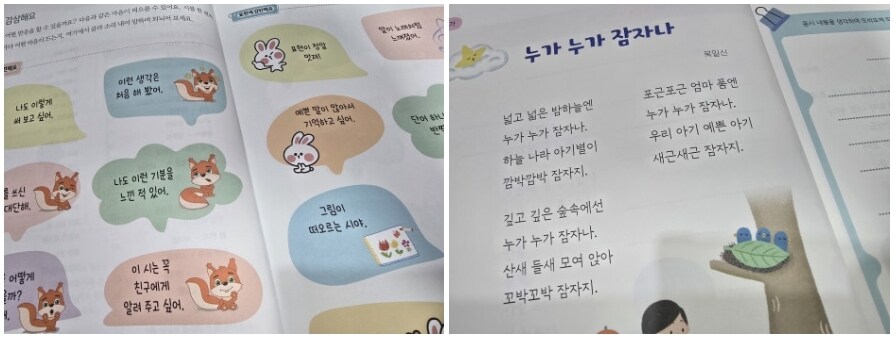 감상해요
표현이 정말
멋져!
말이 노래처럼
느껴졌어.
이런 생각은
처음 해 봤어.
나도 이렇게
써 보고 싶어.
예쁜 말이 많아서
기억하고 싶어.
단어 하나
나도 이런 기분을
느낀 적 있어.
쓰신
대단해.
그림이
떠오르는 시야.
어떻게
이 시는 꼭
친구에게
알려 주고 싶어.
누가 누가 잠자나
목일신
넓고 넓은 밤하늘엔
누가 누가 잠자나.
하늘 나라 아기별이
깜박깜박 잠자지.
깊고 깊은 숲속에선
누가 누가 잠자나.
산새 들새 모여 앉아
꼬박꼬박 잠자지.
포근포근 엄마 품엔
누가 누가 잠자나.
우리 아기 예쁜 아기
새근새근 잠자지.
동시 내용을 생각하며